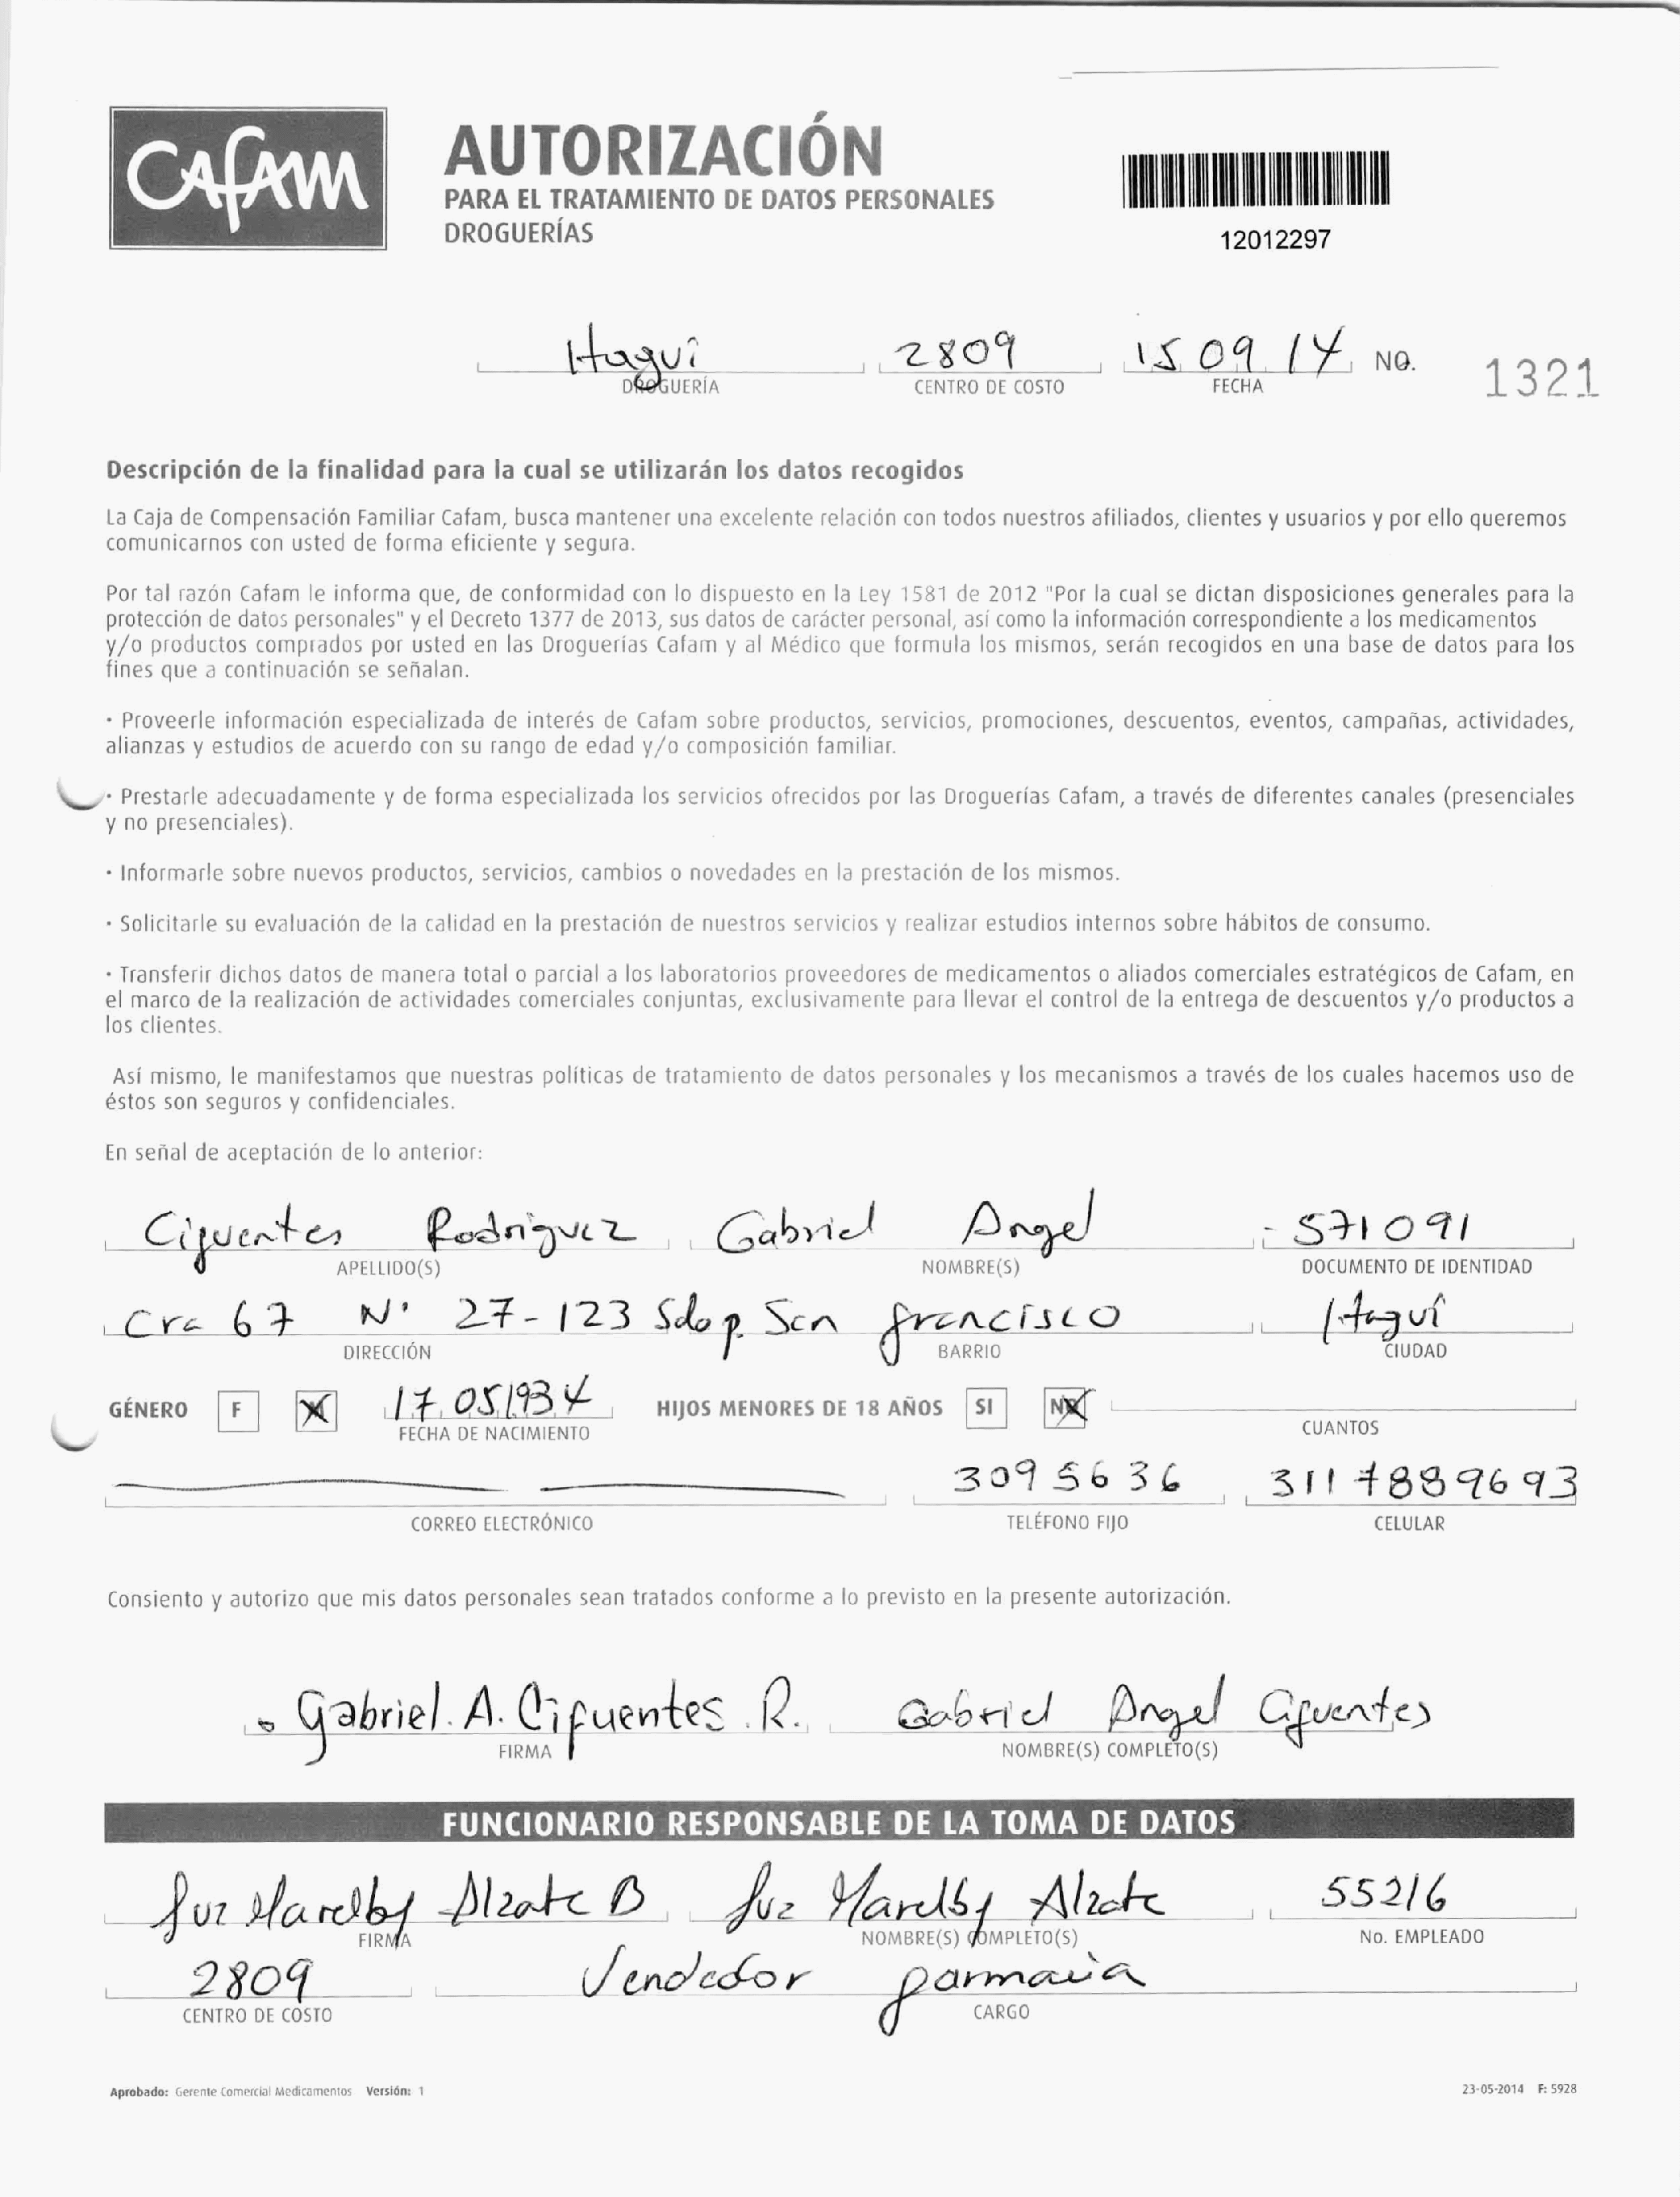 CAFAM
AUTORIZACIÓN
PARA EL TRATAMIENTO DE DATOS PERSONALES
DROGUERÍAS
12012297
Itagui 2809 15 09 14 NO. 1321
DROGUERÍA CENTRO DE COSTO FECHA
Descripción de la finalidad para la cual se utilizarán los datos recogidos
La Caja de Compensación Familiar Cafam, busca mantener una excelente relación con todos nuestros afiliados, clientes y usuarios y por ello queremos
comunicarnos con usted de forma eficiente y segura.
Por tal razón Cafam le informa que, de conformidad con lo dispuesto en la Ley 1581 de 2012 "Por la cual se dictan disposiciones generales para la
protección de datos personales" y el Decreto 1377 de 2013, sus datos de carácter personal, así como la información correspondiente a los medicamentos
y/o productos comprados por usted en las Droguerías Cafam y al Médico que formula los mismos, serán recogidos en una base de datos para los
fines que a continuación se señalan.
· Proveerle información especializada de interés de Cafam sobre productos, servicios, promociones, descuentos, eventos, campañas, actividades,
alianzas y estudios de acuerdo con su rango de edad y/o composición familiar.
· Prestarle adecuadamente y de forma especializada los servicios ofrecidos por las Droguerías Cafam, a través de diferentes canales (presenciales
y no presenciales).
· Informarle sobre nuevos productos, servicios, cambios o novedades en la prestación de los mismos.
· Solicitarle su evaluación de la calidad en la prestación de nuestros servicios y realizar estudios internos sobre hábitos de consumo.
· Transferir dichos datos de manera total o parcial a los laboratorios proveedores de medicamentos o aliados comerciales estratégicos de Cafam, en
el marco de la realización de actividades comerciales conjuntas, exclusivamente para llevar el control de la entrega de descuentos y/o productos a
los clientes.
Así mismo, le manifestamos que nuestras políticas de tratamiento de datos personales y los mecanismos a través de los cuales hacemos uso de
éstos son seguros y confidenciales.
En señal de aceptación de lo anterior:
Cifuentes Rodriguez Gabriel Angel 571091
APELLIDO(S) NOMBRE(S) DOCUMENTO DE IDENTIDAD
Cra 67 N° 27-123 San francisco Itaguí
DIRECCIÓN BARRIO CIUDAD
GÉNERO F M 17.05.1934 HIJOS MENORES DE 18 AÑOS SI NO
FECHA DE NACIMIENTO CUANTOS
3095636 3117889693
CORREO ELECTRÓNICO TELÉFONO FIJO CELULAR
Consiento y autorizo que mis datos personales sean tratados conforme a lo previsto en la presente autorización.
Gabriel. A. Cifuentes. R. Gabriel Angel Cifuentes
FIRMA NOMBRE(S) COMPLETO(S)
FUNCIONARIO RESPONSABLE DE LA TOMA DE DATOS
Luz Marelby Alzate B Luz Marelby Alzate 55216
FIRMA NOMBRE(S) COMPLETO(S) No. EMPLEADO
2809 Vendedor farmacia
CENTRO DE COSTO CARGO
Aprobado: Gerente Comercial Medicamentos Versión: 1 23-05-2014 F: 5928